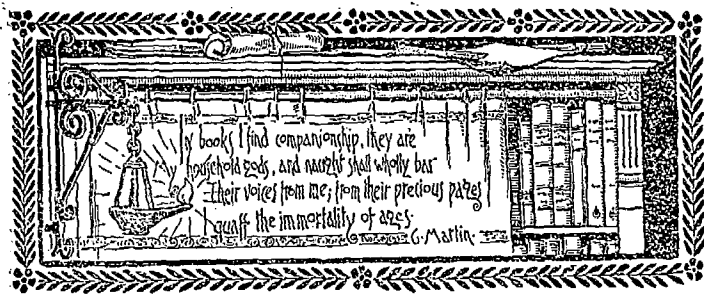 In books I find companionship, they are
household gods, and naught shall wholly bar
Their voices from me; from their precious pages
I quaff the immortality of ages.
G. Martin.